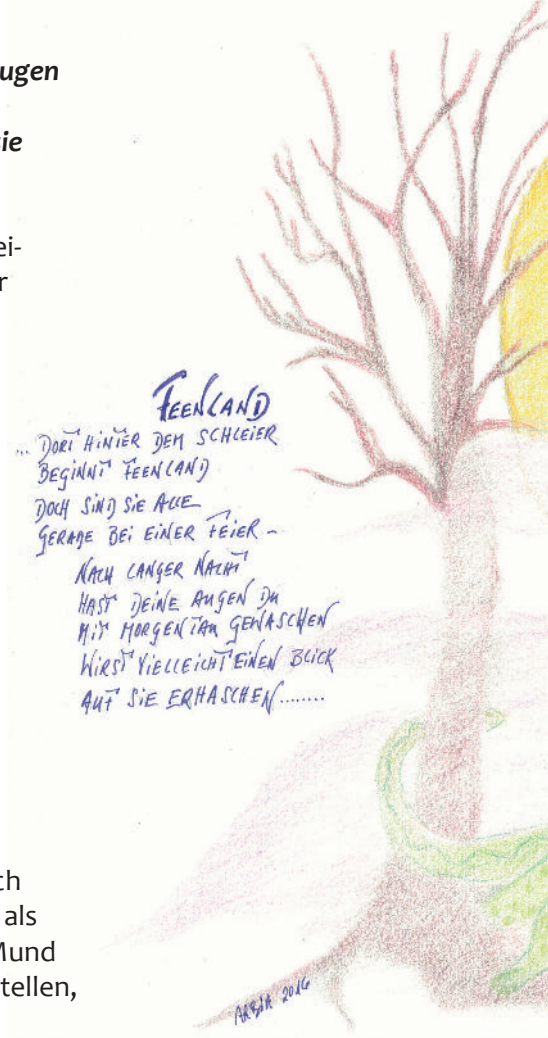 ugen
sie
ei-
r
FEENLAND
... DORT HINTER DEM SCHLEIER
BEGINNT FEENLAND
DOCH SIND SIE ALLE
GERADE BEI EINER FEIER -
NACH LANGER NACHT
HAST DEINE AUGEN DU
MIT MORGENTAU GEWASCHEN
WIRST VIELLEICHT EINEN BLICK
AUF SIE ERHASCHEN ........
ch
als
Mund
tellen,
2016